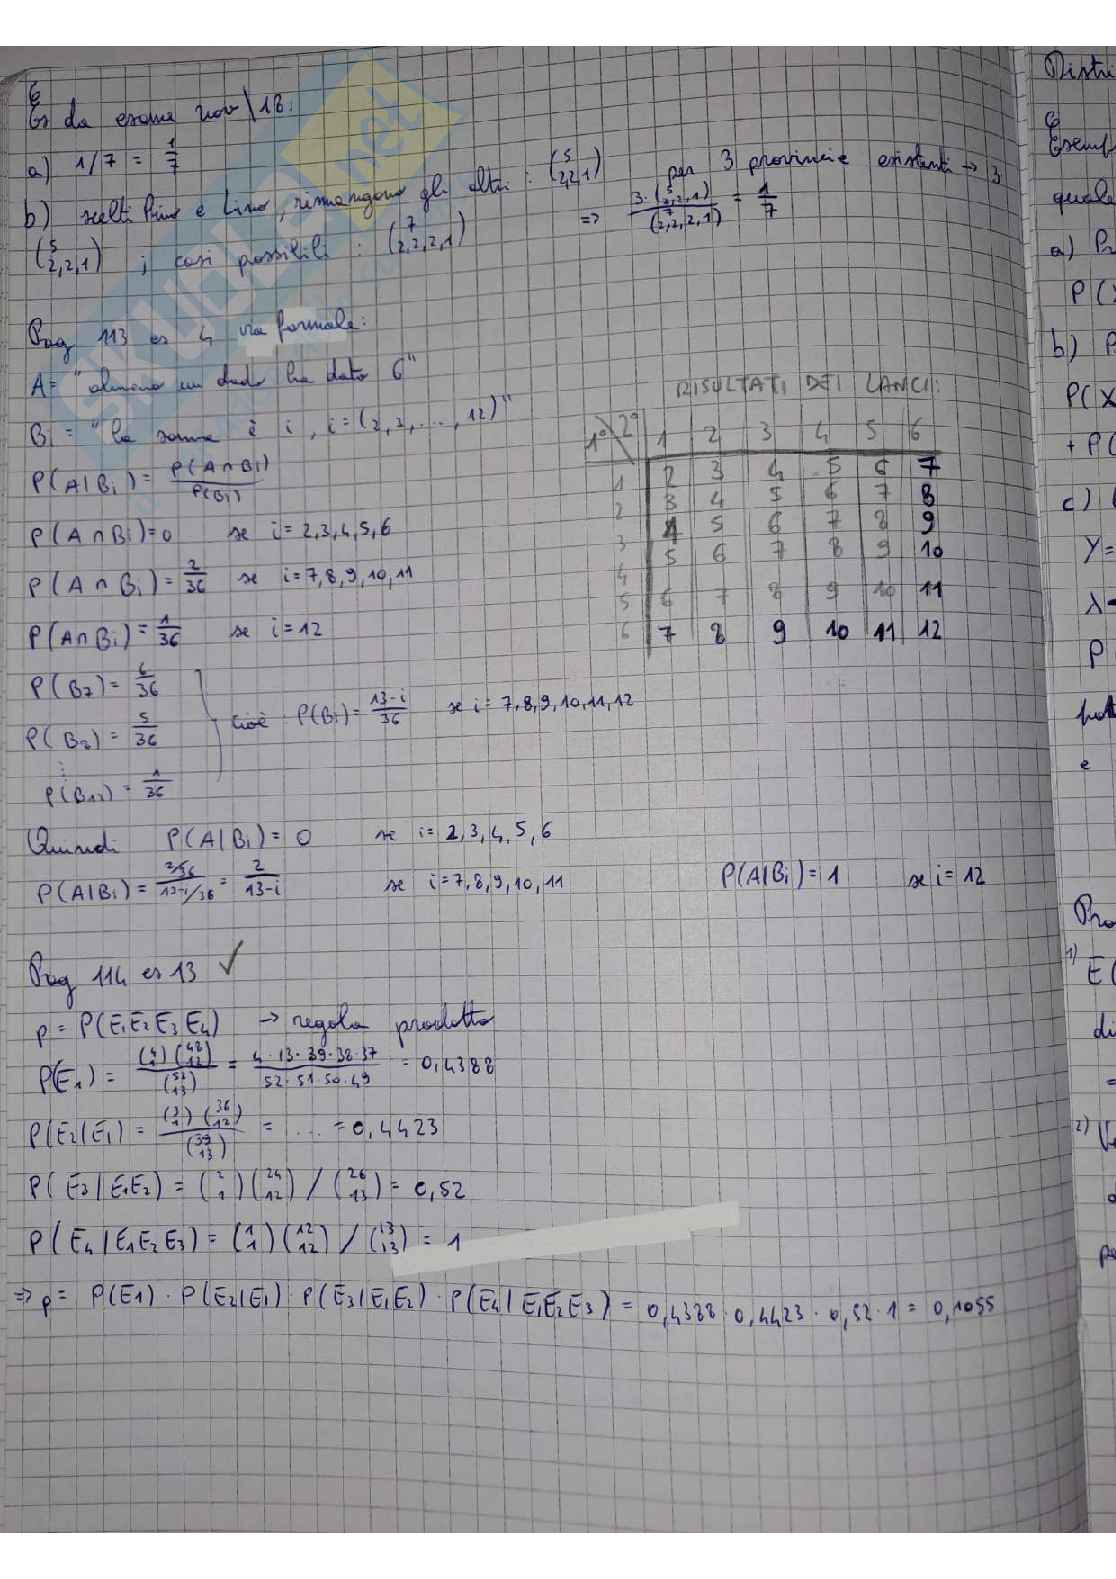 Es da esame nov\18:
a) 1/7 = 1/7
b) scelti Pino e Lino, rimangono gli altri : (5 2,2,1) per 3 provincie esistenti → 3
(5 2,2,1) ; casi possibili : (7 2,2,2,1) => 3·(5 2,2,1) / (7 2,2,2,1) = 1/7
Pag 113 es 4 via formale:
A = "almeno un dado ha dato 6"
RISULTATI DEI LANCI:
Bi = "la somma è i, i=(2,3,...,12)"
P(A|Bi) = P(A∩Bi)/P(Bi)
P(A∩Bi)=0 se i=2,3,4,5,6
P(A∩Bi)=2/36 se i=7,8,9,10,11
P(A∩Bi)=1/36 se i=12
1° \ 2° 1 2 3 4 5 6
1 2 3 4 5 6 7
2 3 4 5 6 7 8
3 4 5 6 7 8 9
4 5 6 7 8 9 10
5 6 7 8 9 10 11
6 7 8 9 10 11 12
P(B7)= 6/36
P(B8)= 5/36
cioè : P(Bi)= 13-i/36 se i=7,8,9,10,11,12
⋮
P(B12)= 1/36
Quindi P(A|Bi)= 0 se i=2,3,4,5,6
P(A|Bi)= 2/36 / 13-i/36 = 2/13-i se i=7,8,9,10,11 P(A|Bi)=1 se i=12
Pag 114 es 13 ✓
p= P(E1E2E3E4) → regola prodotto
P(E1) = (4 1)(48 12)/(52 13) = 4·13·39·38·37 / 52·51·50·49 = 0,4388
P(E2|E1) = (3 1)(36 12)/(39 13) = .... = 0,4423
P(E3|E1E2) = (2 1)(24 12) / (26 13) = 0,52
P(E4|E1E2E3) = (1 1)(12 12) / (13 13) = 1
=> p= P(E1)·P(E2|E1)·P(E3|E1E2)·P(E4|E1E2E3) = 0,4388·0,4423·0,52·1 = 0,1055
Distri
Esemp
quale
a) P
P(
b) P
P(X
+ P(
c)
Y=
λ=
P
e
1)
E(
di
=
2)
SKUOLA.net